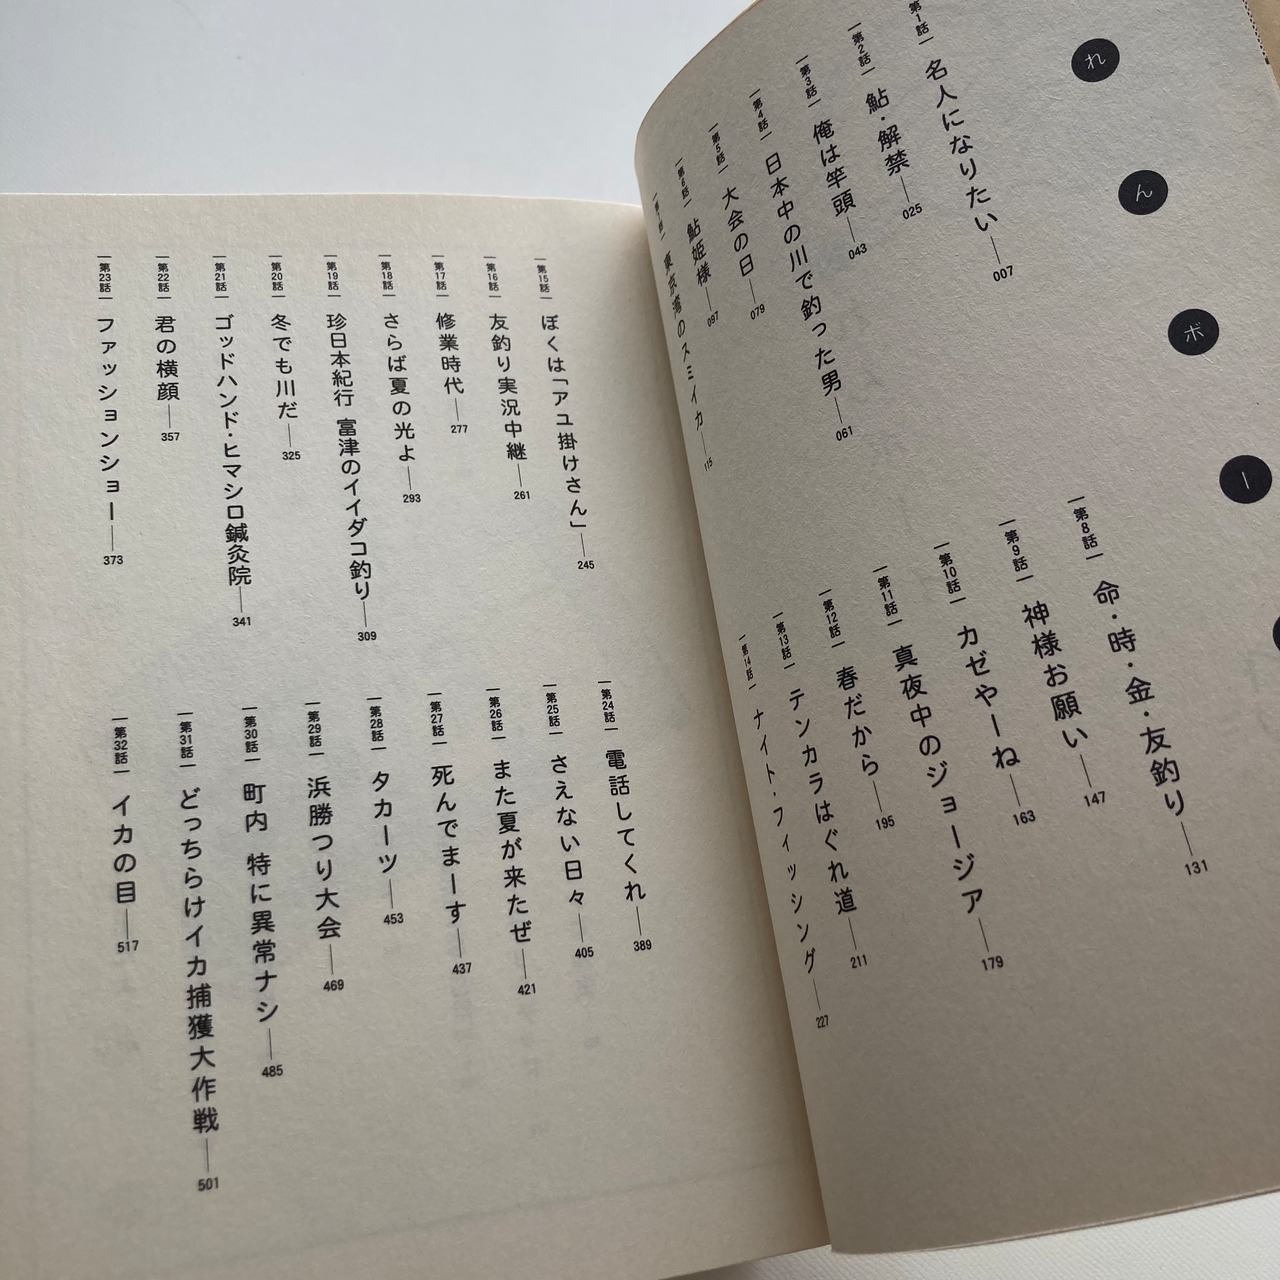 れんボー
第1話 名人になりたい 007
第2話 鮎・解禁 025
第3話 俺は竿頭 043
第4話 日本中の川で釣った男 061
第5話 大会の日 079
第6話 鮎姫様 097
第7話 東京湾のスミイカ 115
第8話 命・時・金・友釣り 131
第9話 神様お願い 147
第10話 カゼやーね 163
第11話 真夜中のジョージア 179
第12話 春だから 195
第13話 テンカラはぐれ道 211
第14話 ナイト・フィッシング 227
第15話 ぼくは「アユ掛けさん」 245
第16話 友釣り実況中継 261
第17話 修業時代 277
第18話 さらば夏の光よ 293
第19話 珍日本紀行 富津のイイダコ釣り 309
第20話 冬でも川だ 325
第21話 ゴッドハンド・ヒマシロ鍼灸院 341
第22話 君の横顔 357
第23話 ファッションショー 373
第24話 電話してくれ 389
第25話 さえない日々 405
第26話 また夏が来たぜ 421
第27話 死んでまーす 437
第28話 タカーツ 453
第29話 浜勝つり大会 469
第30話 町内 特に異常ナシ 485
第31話 どっちらけイカ捕獲大作戦 501
第32話 イカの目 517